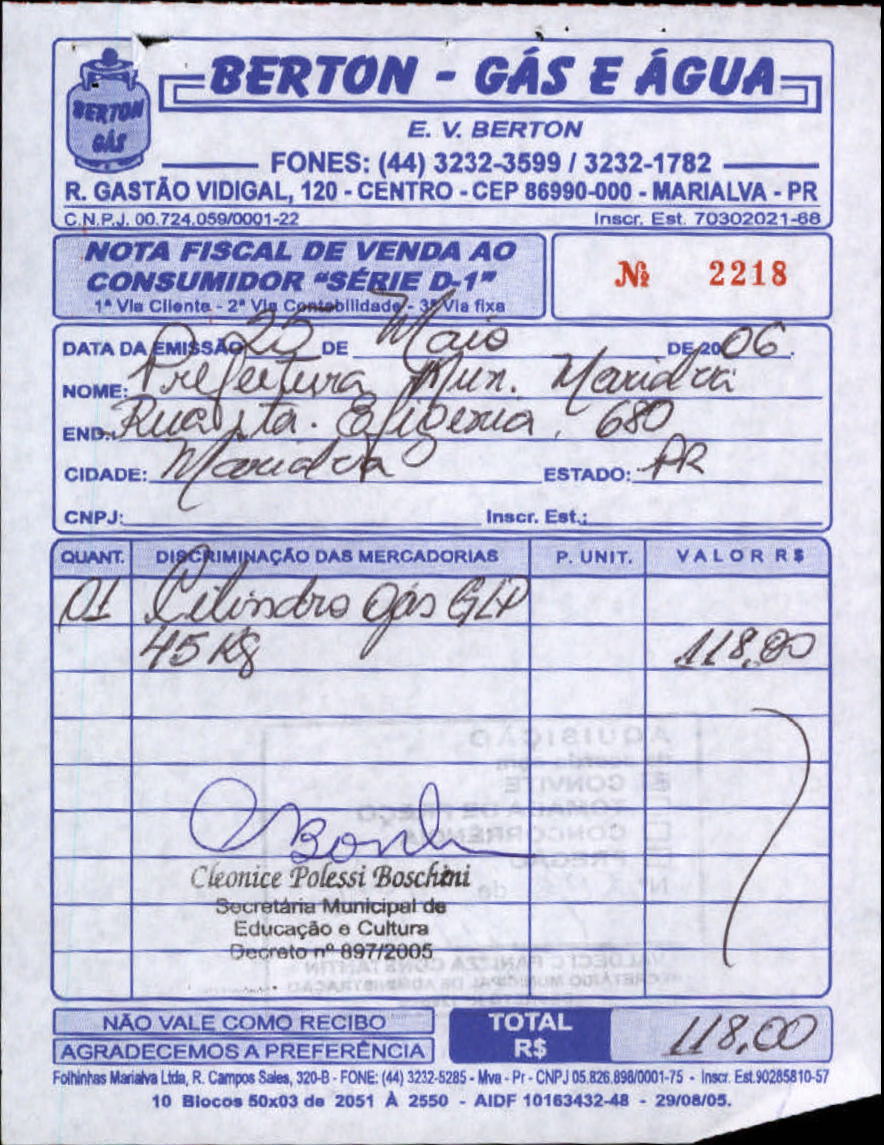 BERTON GÁS
BERTON - GÁS E ÁGUA
E. V. BERTON
FONES: (44) 3232-3599 / 3232-1782
R. GASTÃO VIDIGAL, 120 - CENTRO - CEP 86990-000 - MARIALVA - PR
C.N.P.J. 00.724.059/0001-22 Inscr. Est. 70302021-68
NOTA FISCAL DE VENDA AO
CONSUMIDOR "SÉRIE D-1"
1ª Via Cliente - 2ª Via Contabilidade - 3ª Via fixa
Nº 2218
DATA DA EMISSÃO 25 DE Maio DE 2006.
NOME: Prefeitura Mun. Marialva
END.: Rua Sta. Efigenia, 680
CIDADE: Marialva ESTADO: PR
CNPJ: Inscr. Est.:
QUANT. DISCRIMINAÇÃO DAS MERCADORIAS P. UNIT. VALOR R$
01 Cilindro Gás GLP
45 Kg 118,00
AQUISIÇÃO
CONVITE
TOMADA DE PREÇO
CONCORRÊNCIA
PREGÃO
Cleonice Polessi Boschini
Secretária Municipal de
Educação e Cultura
Decreto nº 897/2005
SECRETÁRIO MUNICIPAL DE ADMINISTRAÇÃO
NÃO VALE COMO RECIBO
AGRADECEMOS A PREFERÊNCIA
TOTAL R$ 118,00
Folhinhas Marialva Ltda, R. Campos Sales, 320-B - FONE: (44) 3232-5285 - Mva - Pr - CNPJ 05.826.898/0001-75 - Inscr. Est.90285810-57
10 Blocos 50x03 de 2051 À 2550 - AIDF 10163432-48 - 29/08/05.